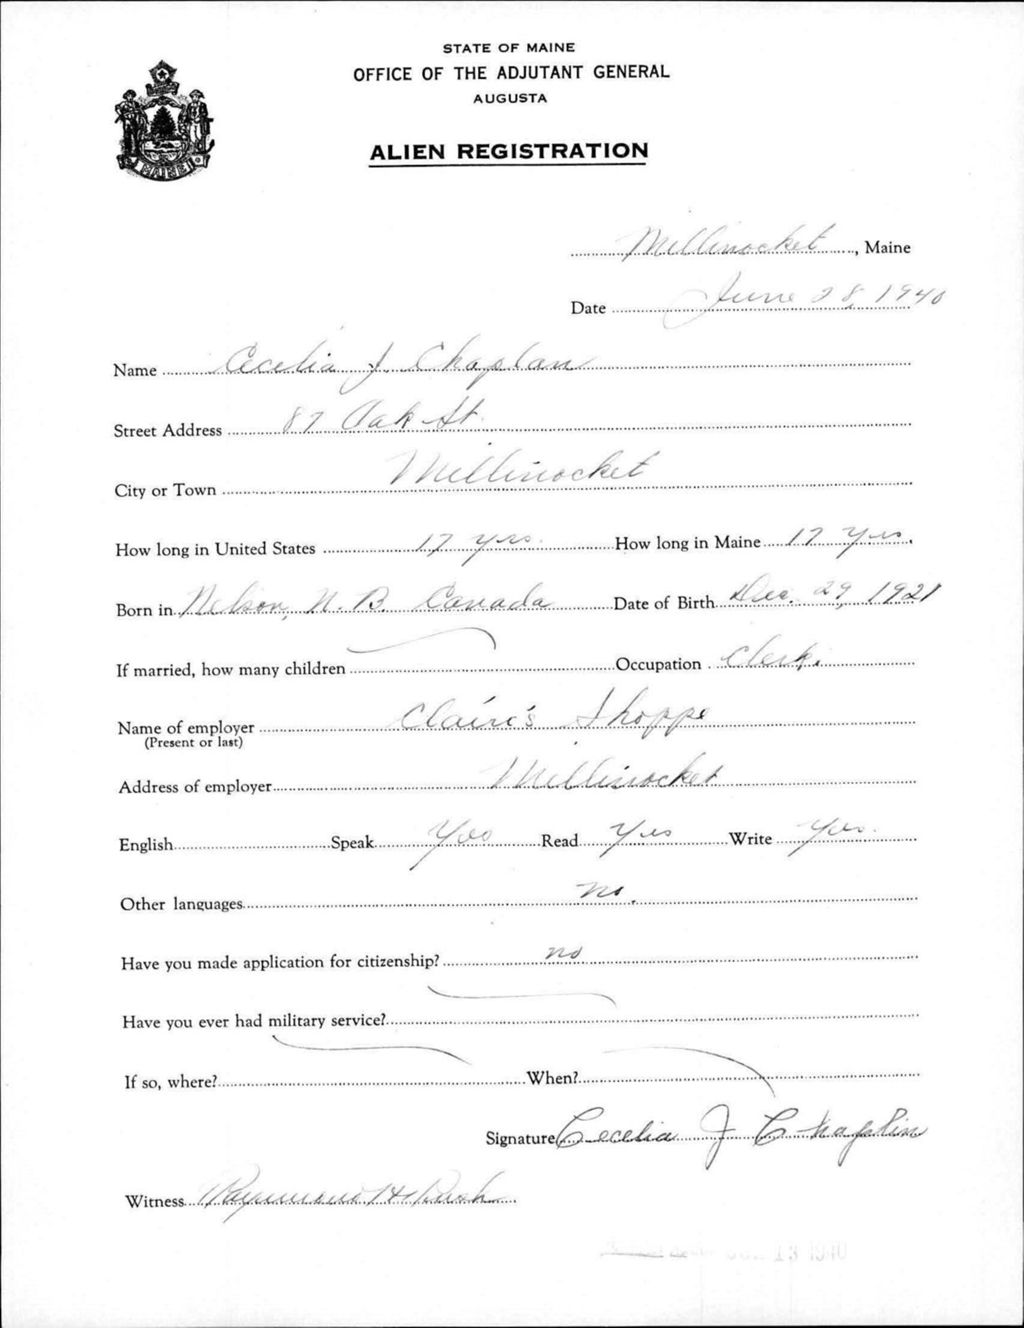 STATE OF MAINE
OFFICE OF THE ADJUTANT GENERAL
AUGUSTA
ALIEN REGISTRATION
MAINE
Millinocket, Maine
Date June 28, 1940
Name Cecelia J. Chaplan
Street Address 87 Oak St.
City or Town Millinocket
How long in United States 17 yrs. How long in Maine 17 yrs.
Born in Nelson, N. B. Canada Date of Birth Dec. 29, 1921
If married, how many children Occupation Clerk.
Name of employer Claire's Shoppe
(Present or last)
Address of employer Millinocket
English Speak Yes Read Yes Write Yes.
Other languages no.
Have you made application for citizenship? no
Have you ever had military service?
If so, where? When?
Signature Cecelia J Chaplin
Witness Raymond H Rush
13 1940